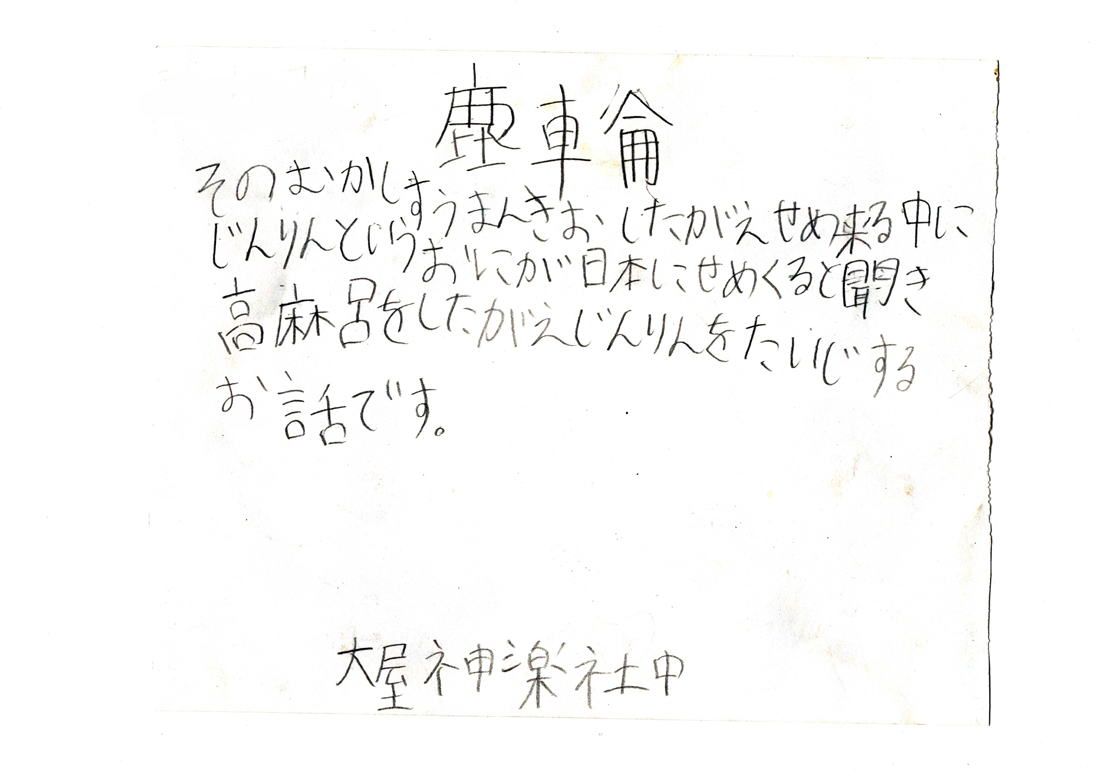 塵車侖
そのむかしすうまんきおしたがえせめ来る中に
じんりんというおにが日本にせめくると聞き
高麻呂をしたがえじんりんをたいじする
お話です。
大屋神楽社中